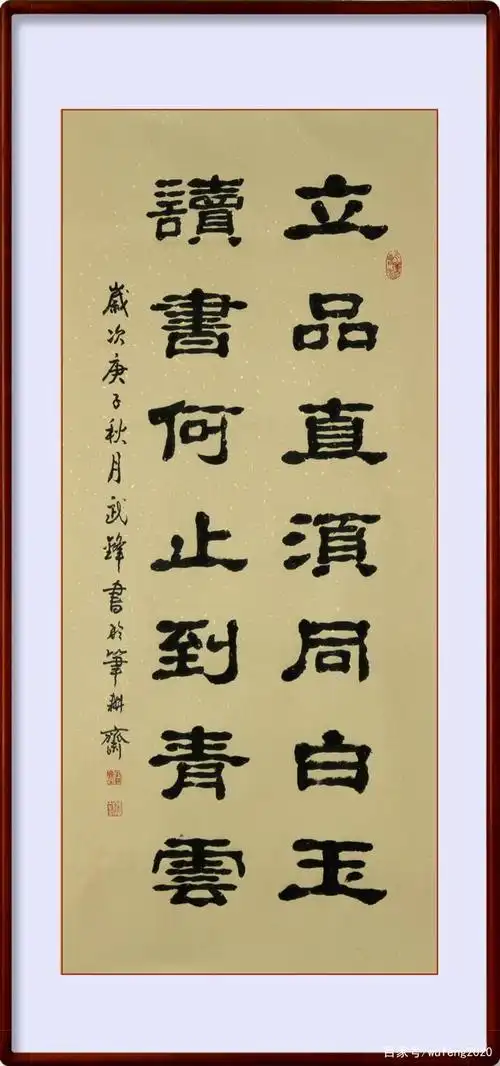 立品直須同白玉
讀書何止到青雲
歲次庚子秋月武鋒書於筆耕齋
百家号/wufeng2020